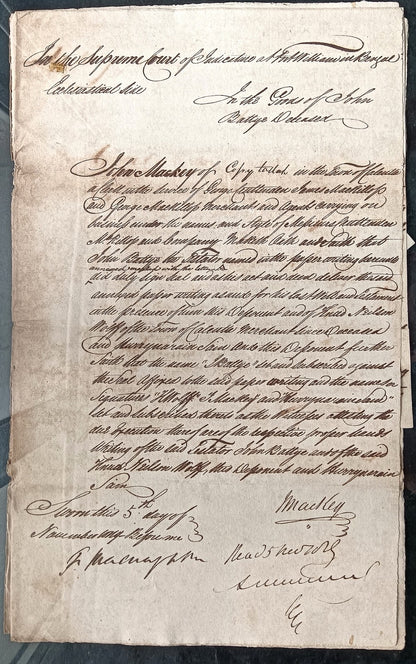 In the Supreme Court of Judicature at Fort William in Bengal
Ecclesiastical Side
In the Goods of John
Battye Deceased
John Mackey of in the Town of Calcutta
in the service of George Cruttenden James Mackillop
and George Mackillop Merchants and Agents carrying on
business under the name and Style of Messieurs Cruttenden
Mackillop and Company Maketh Oath and Saith that
John Battye the Testator named in the paper writing hereunto
annexed
did duly sign and as his act and deed deliver the said
annexed paper writing as and for his last Will and Testament
in the presence of him this Deponent and of Knud Neilson
Wolff of the Town of Calcutta Merchant since Deceased
and Hurrynarain Sain And this Deponent further
Saith that the name J Battye set and subscribed against
the Seal affixed to the said paper writing and the names or
Signatures J Mackey and Hurrynarain
set and subscribed thereto as the Witnesses attesting the
due Execution thereof are of the respective proper hands
writing of the said Testator John Battye and of the said
Knud Neilson Wolff, this Deponent and Hurrynarain
Sain
Sworn this 5th day of
November before me
J Mackey